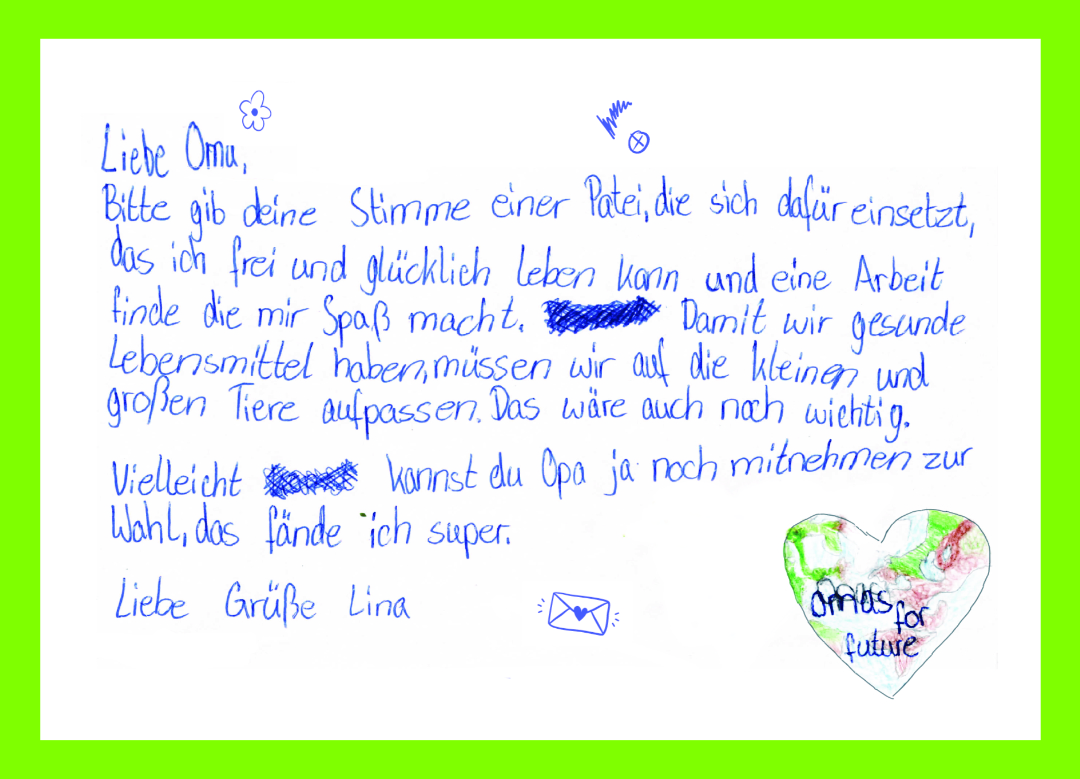 Liebe Omu,
Bitte gib deine Stimme einer Patei, die sich dafür einsetzt,
das ich frei und glücklich leben kann und eine Arbeit
finde die mir Spaß macht. Damit wir gesunde
Lebensmittel haben, müssen wir auf die kleinen und
großen Tiere aufpassen. Das wäre auch noch wichtig.
Vielleicht kannst du Opa ja noch mitnehmen zur
Wahl, das fände ich super.
Liebe Grüße Lina
omas for
future